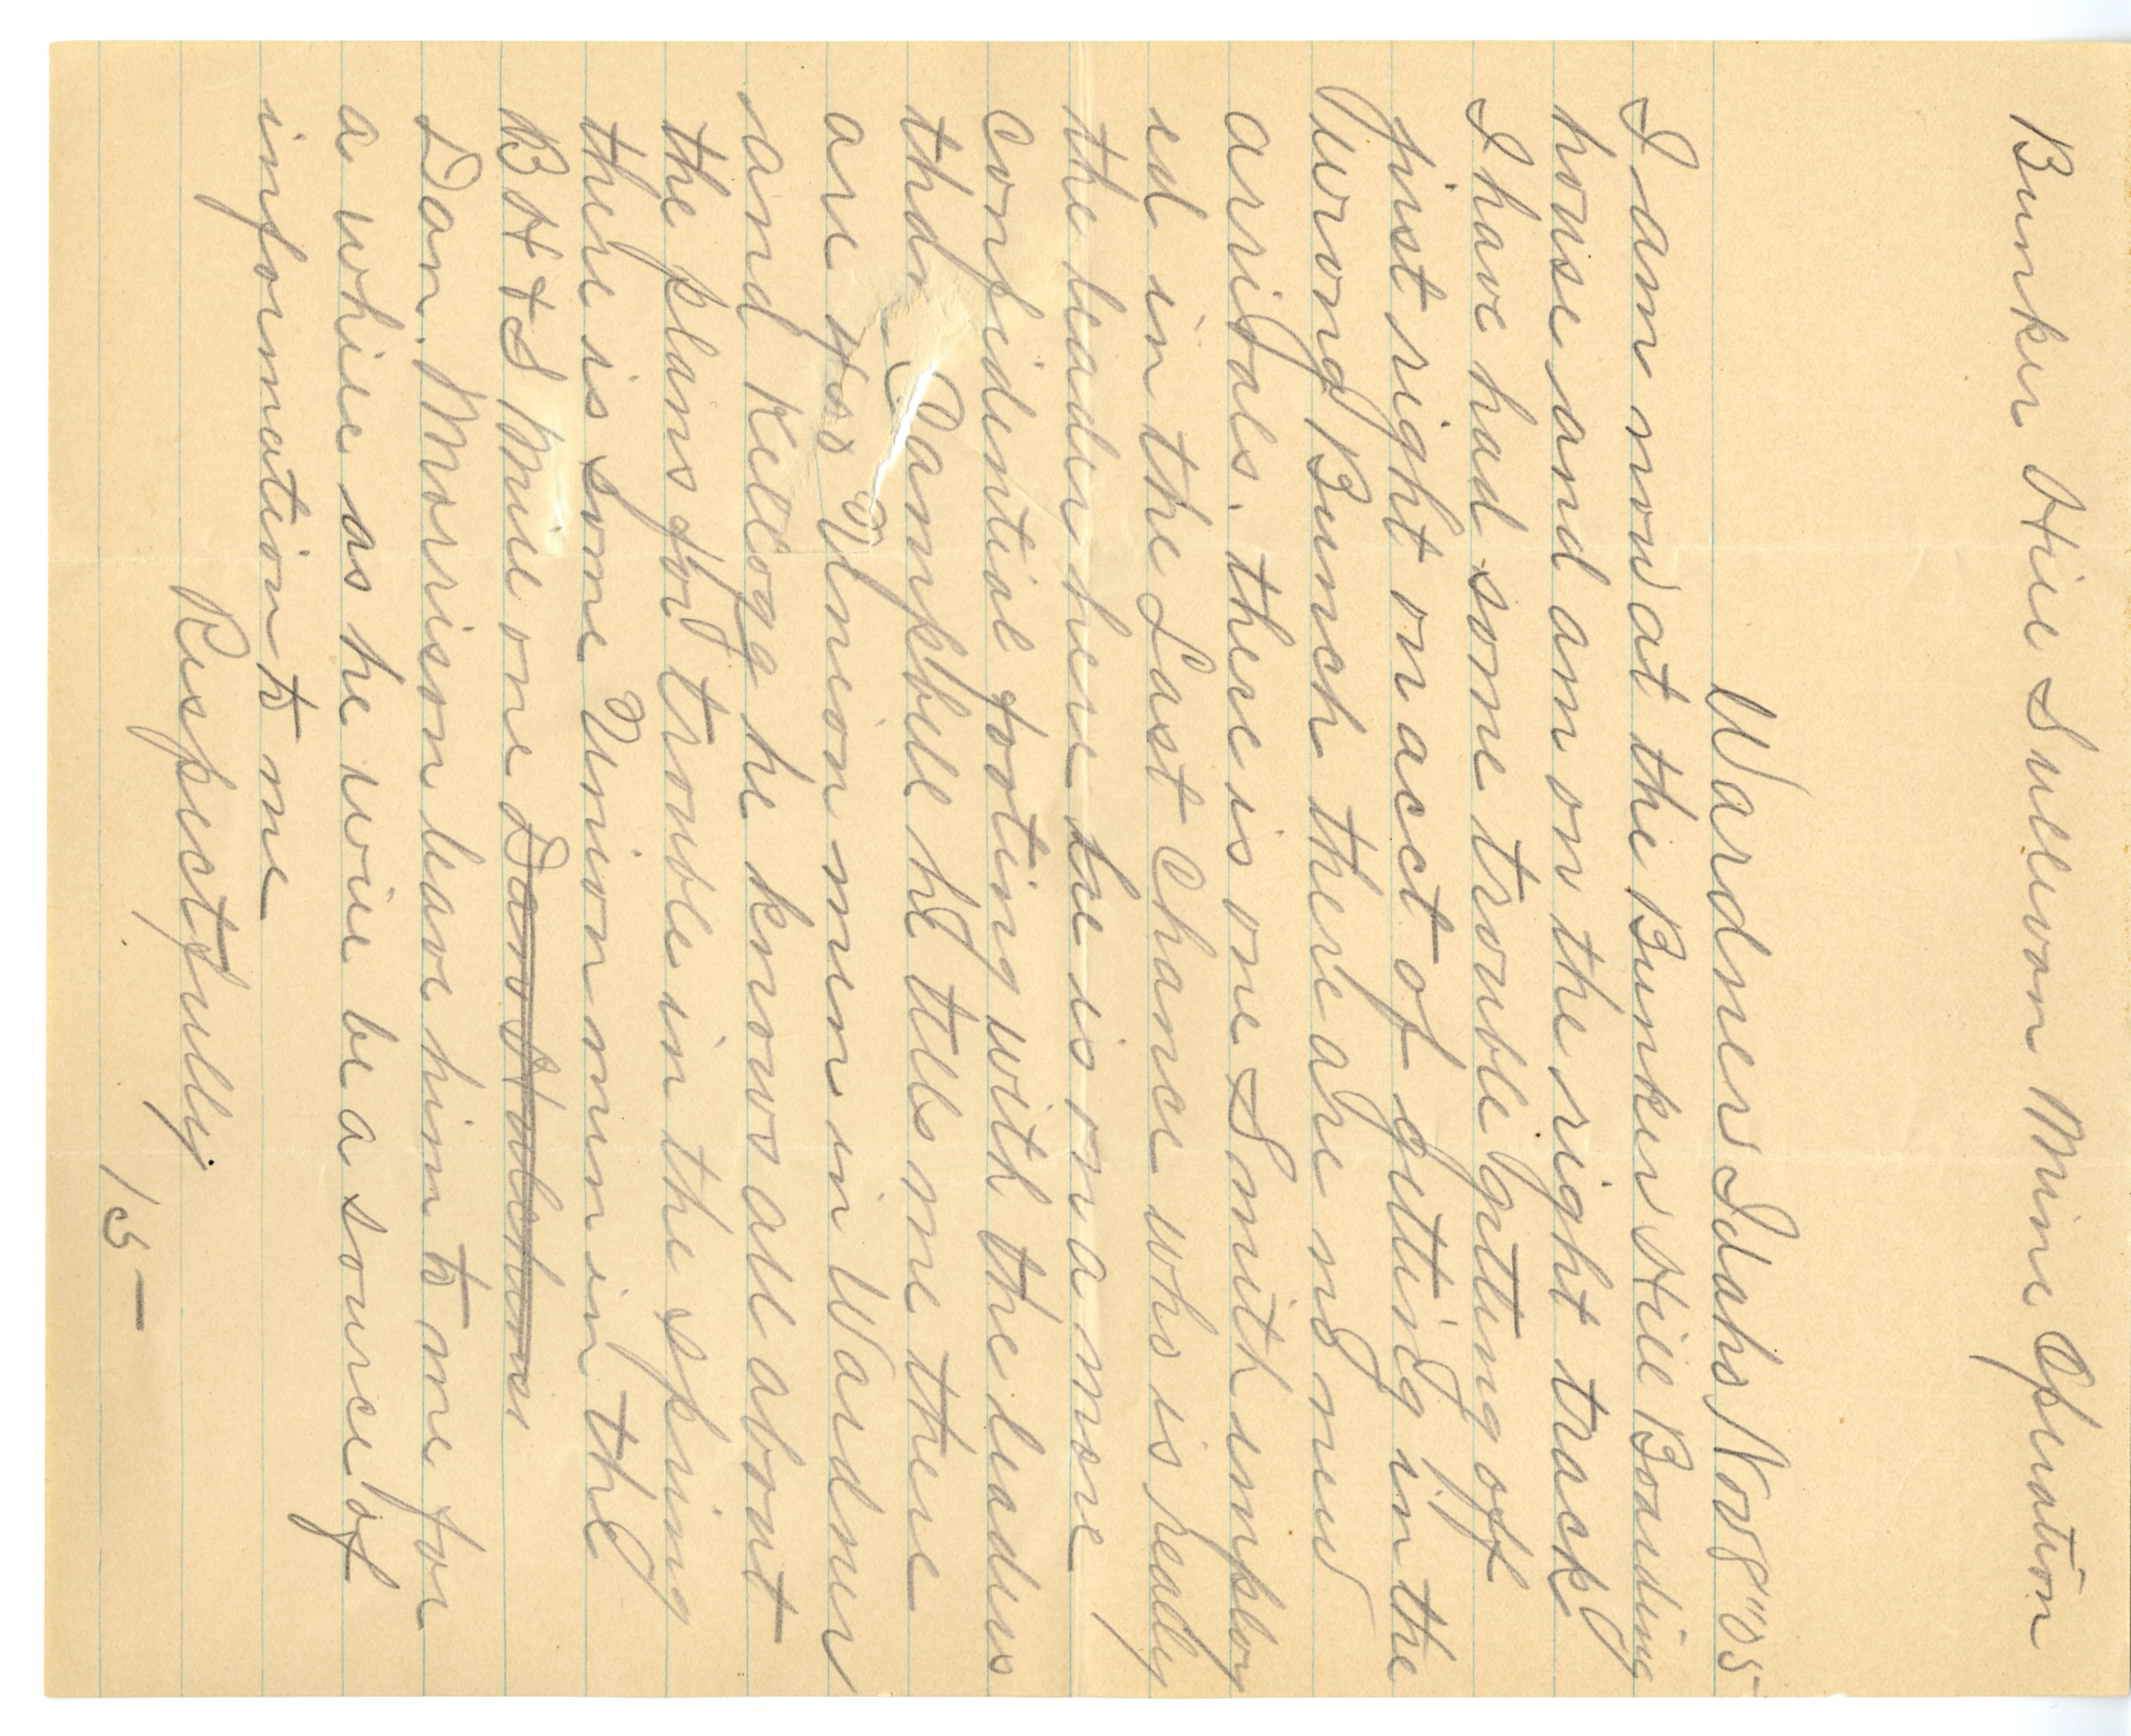 Bunker Hill Sullivan Mine Operation
Wardner Idaho Nov 8" 05
I am now at the Bunker Hill Boarding
house and am on the right track
I have had some trouble getting off
just right on acct of getting in the
wrong Bunch there are no new
arrivals. there is one Smith employ
ed in the Last Chance who is really
the leader here he is on a more
confidential footing with the leaders
than Campbell he tells me there
are 400 Union men in Wardner
and Kellogg he knows all about
the plans for trouble in the spring
there is some Union men in the
B H & S Mill one Dan Hutchens
Dan. Morrison leave him to me for
a while as he will be a source of
information to me
Respectfully
15